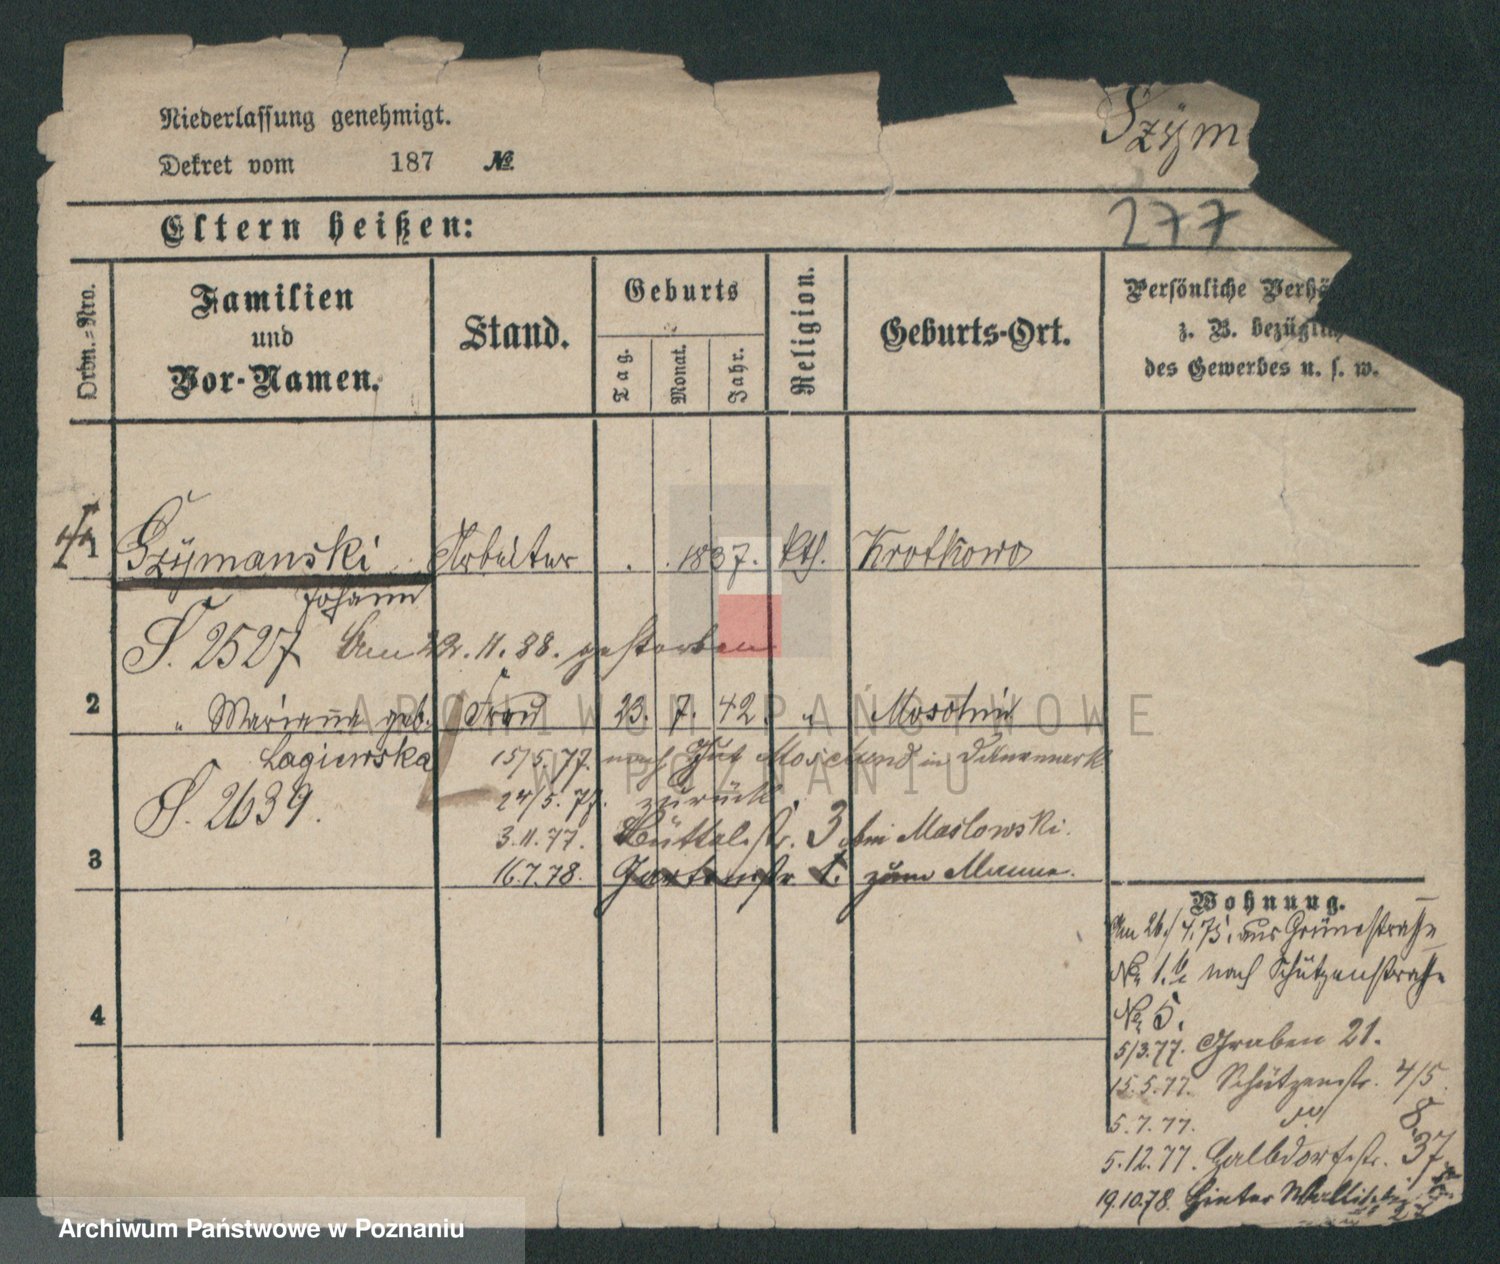 Niederlassung genehmigt.
Szym
Dekret vom 187 №
277
Eltern heißen:
Ordn.=Nro.
Familien
und
Vor-Namen.
Stand.
Geburts
Tag.
Monat.
Jahr.
Religion.
Geburts-Ort.
Persönliche Verhä
z. B. bezüglich
des Gewerbes u. s. w.
1 Szymanski Arbeiter . . 1837. kth. Krotkowo
Johann
S. 2527 Am 22.11.88. gestorben
2 " Marianna geb. Frau 23. 7. 42. " Moschin
Lagiewska 15/5.77. nach Gut in Dänemark
S. 2639. 24/5.77. zurück.
3.11.77. Büttelstr. 3 bei Maslowski.
3 16.7.78. Gartenstr. 1. zum Manne.
4
Wohnung.
Am 26./4.75. aus Grünestraße
No 1. nach Schützenstraße
No 5.
5/3.77. Graben 21.
15.5.77. Schützenstr. 4/5
5.7.77. " 8.
5.12.77. Halbdorfstr. 37
19.10.78. Hinter Wallischei
27
ARCHIWUM PAŃSTWOWE
W POZNANIU
Archiwum Państwowe w Poznaniu